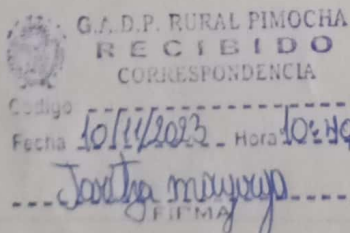 G.A.D.P. RURAL PIMOCHA
RECIBIDO
CORRESPONDENCIA
Codigo
Fecha 10/11/2023 Hora 10:
FIRMA